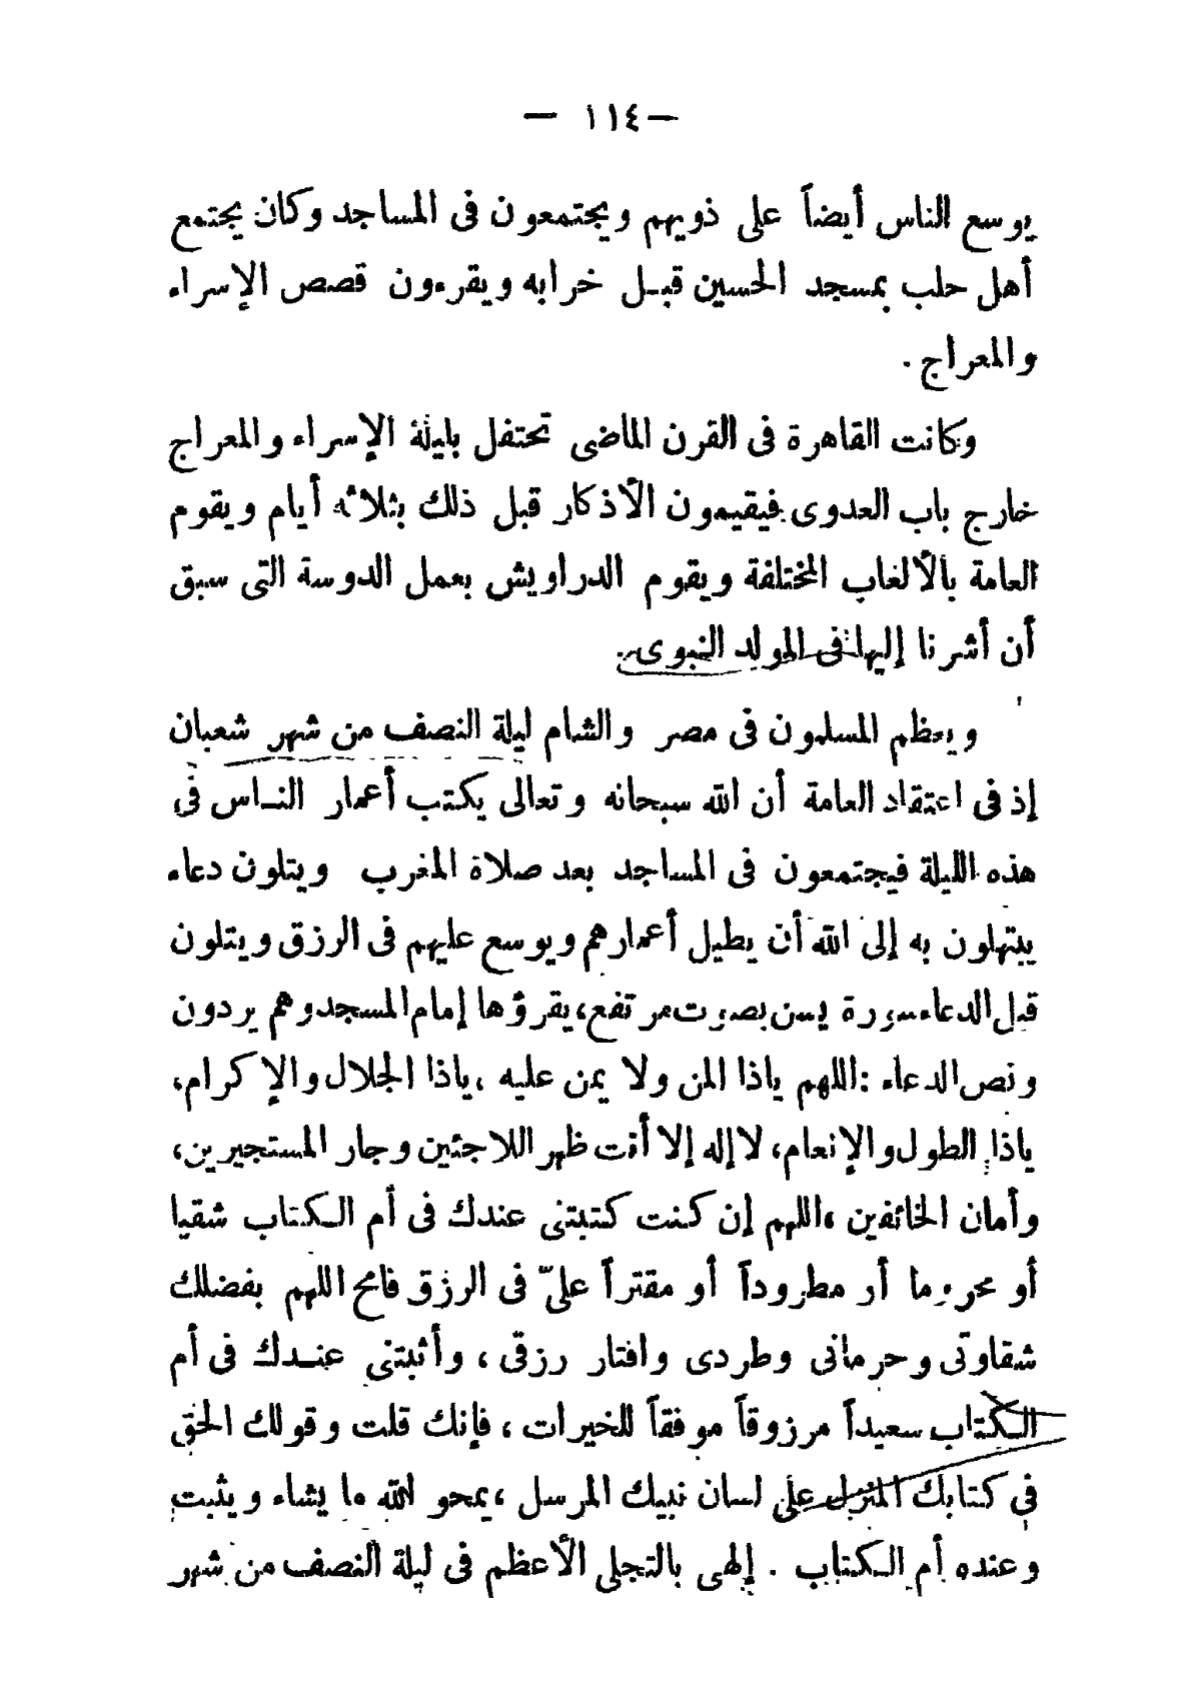 — ١١٤ —
يوسع الناس أيضاً على ذويهم ويجتمعون فى المساجد وكان يجتمع
أهل حلب بمسجد الحسين قبل خرابه ويقرءون قصص الإسراء
والمعراج .
وكانت القاهرة فى القرن الماضى تحتفل بليلة الإسراء والمعراج
خارج باب العدوى فيقيمون الأذكار قبل ذلك بثلاثة أيام ويقوم
العامة بالألغاب المختلفة ويقوم الدراويش بعمل الدوسة التى سبق
أن أشرنا إليها فى المولد النبوى .
ويعظم المسلمون فى مصر والشام ليلة النصف من شهر شعبان
إذ فى اعتقاد العامة أن الله سبحانه وتعالى يكتب أعمار الناس فى
هذه الليلة فيجتمعون فى المساجد بعد صلاة المغرب ويتلون دعاء
يبتهلون به إلى الله أن يطيل أعمارهم ويوسع عليهم فى الرزق ويتلون
قبل الدعاء سورة يسن بصوت مرتفع، يقرؤها إمام المسجد وهم يردون
ونص الدعاء : اللهم ياذا المن ولا يمن عليه ، ياذا الجلال والإكرام،
ياذا الطول والإنعام، لا إله إلا أنت ظهر اللاجئين وجار المستجيرين،
وأمان الخائفين ، اللهم إن كنت كتبتنى عندك فى أم الكتاب شقيا
أو محروما أو مطروداً أو مقتراً علىّ فى الرزق فامح اللهم بفضلك
شقاوتى وحرمانى وطردى وافتار رزقى ، وأثبتنى عندك فى أم
الكتاب سعيداً مرزوقاً موفقاً للخيرات ، فإنك قلت وقولك الحق
فى كتابك المنزل على لسان نبيك المرسل ، يمحو الله ما يشاء ويثبت
وعنده أم الكتاب . إلهى بالتجلى الأعظم فى ليلة النصف من شهر